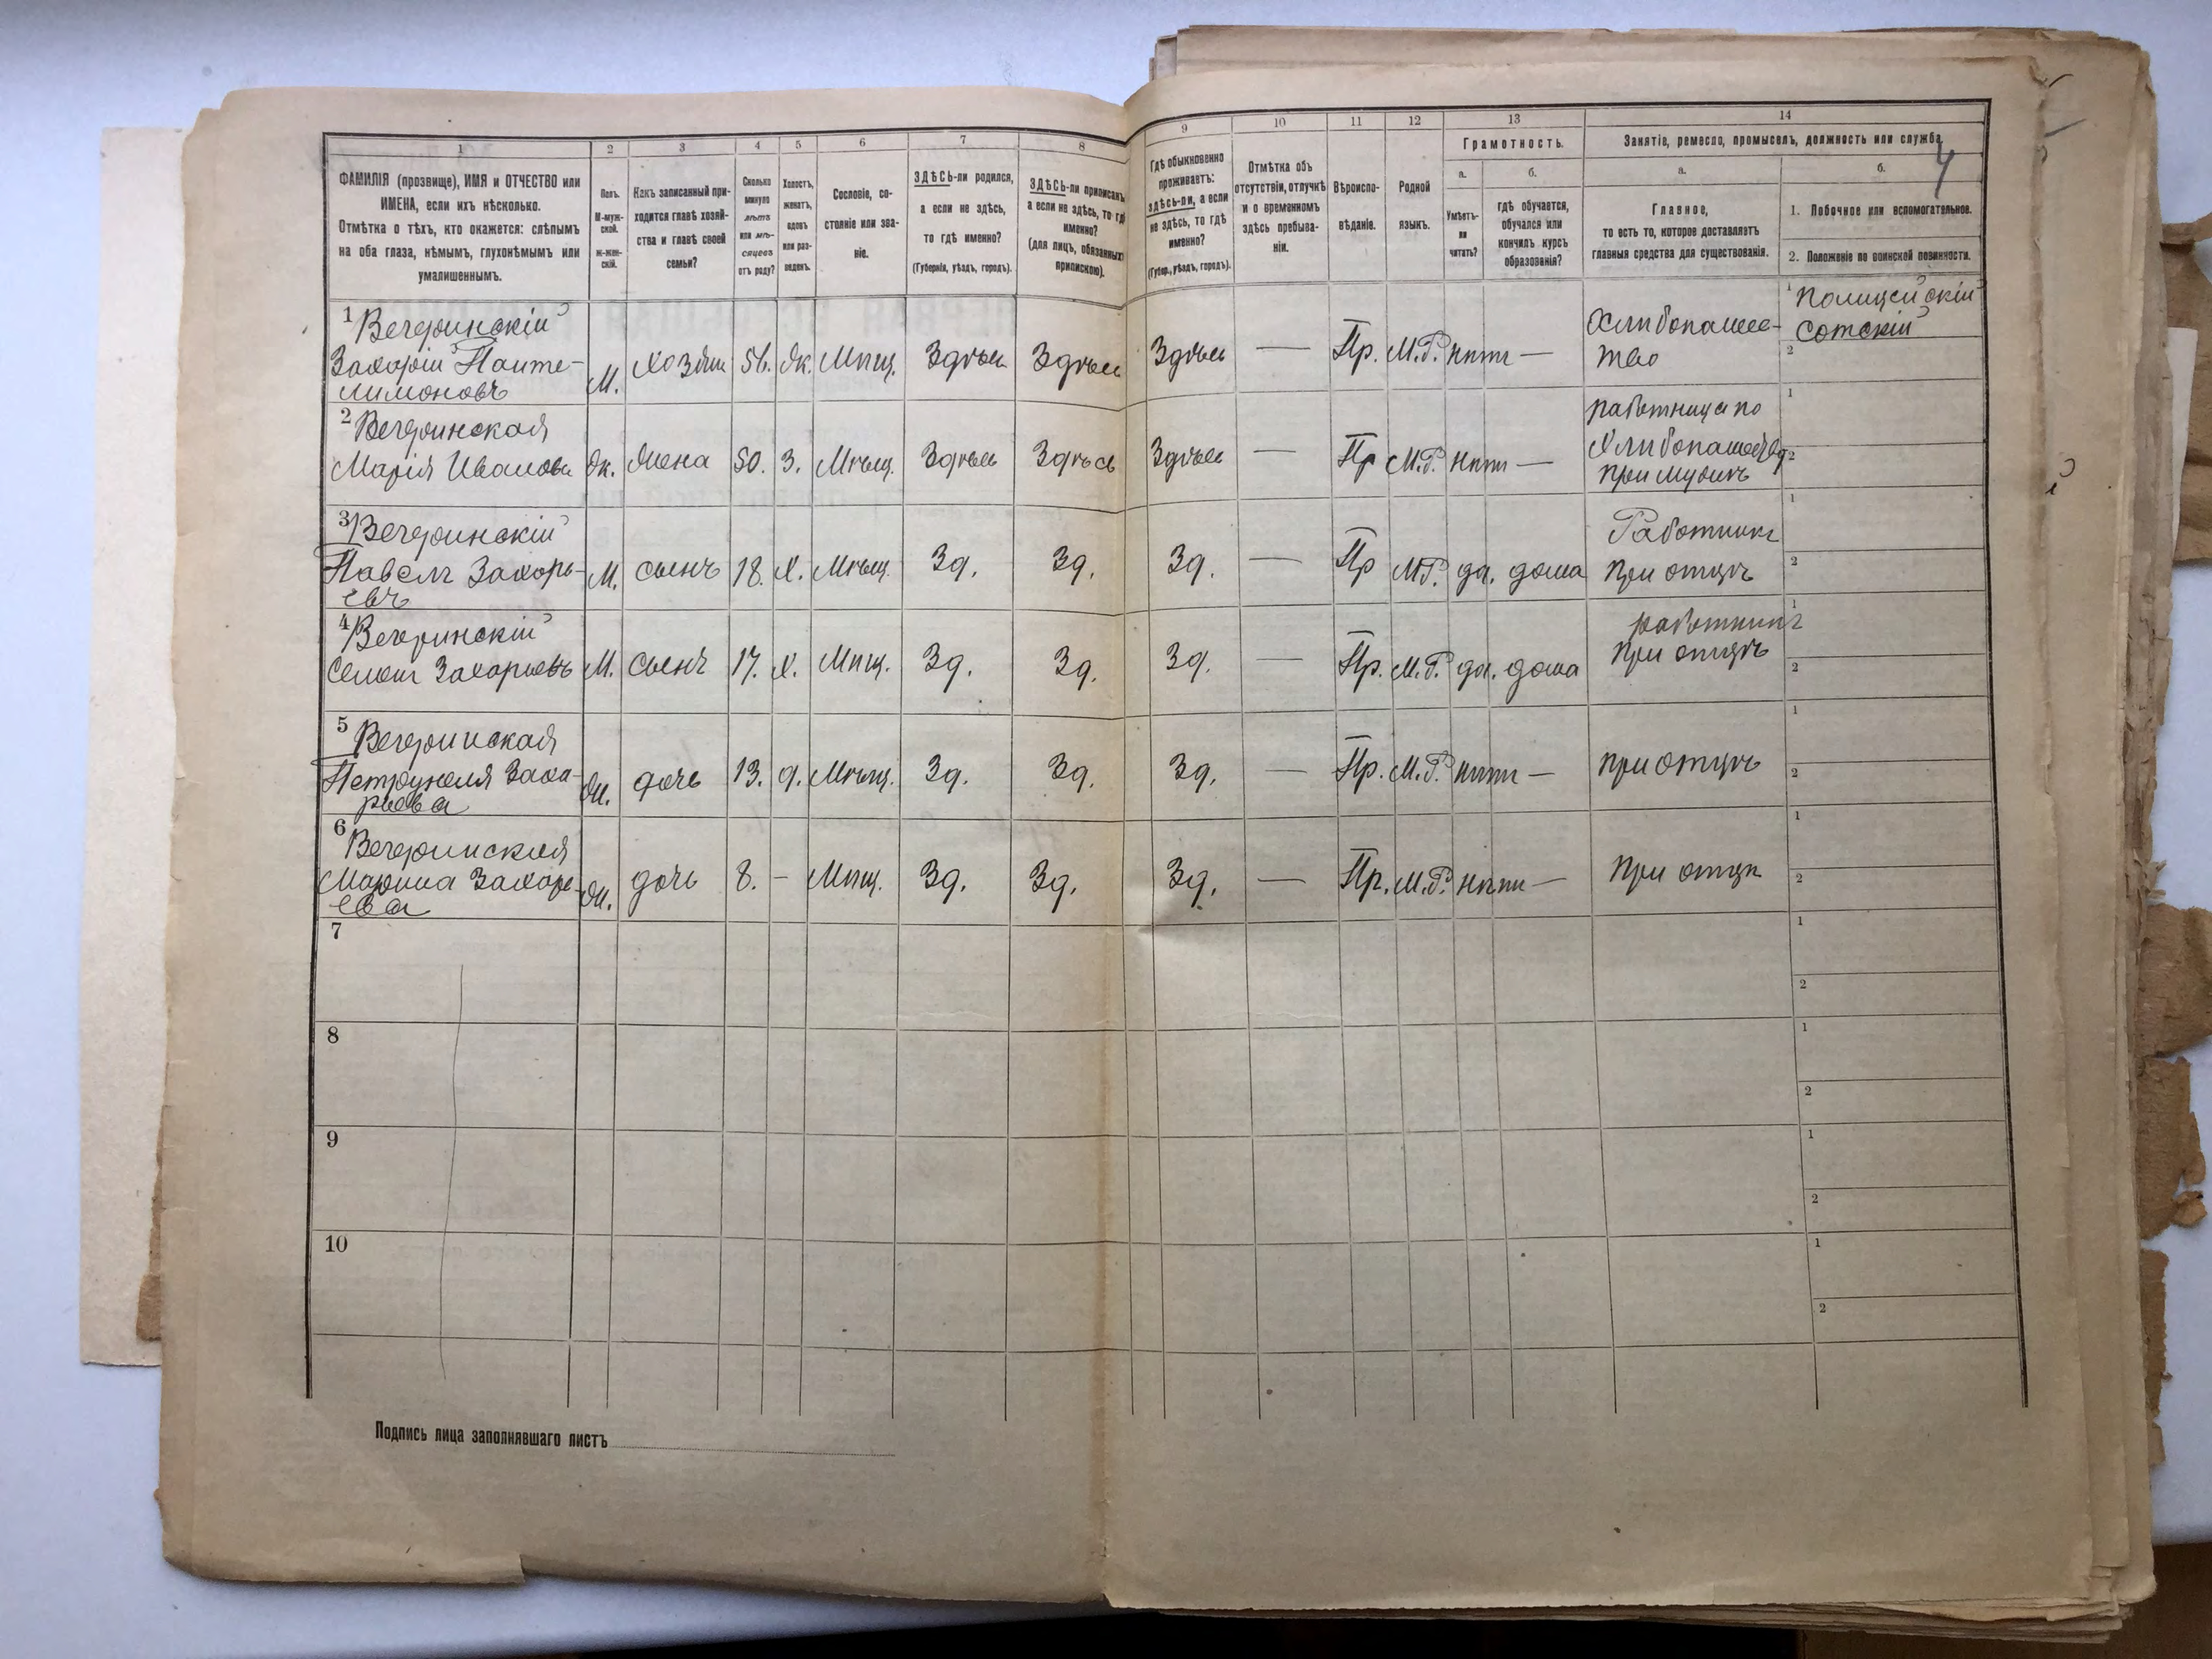 1 2 3 4 5 6 7 8 9 10 11 12 13 14
ФАМИЛІЯ (прозвище), ИМЯ и ОТЧЕСТВО или
ИМЕНА, если ихъ нѣсколько.
Отмѣтка о тѣхъ, кто окажется: слѣпымъ
на оба глаза, нѣмымъ, глухонѣмымъ или
умалишеннымъ.
Полъ.
М-муж-
ской.
Ж-жен-
скій.
Какъ записанный при-
ходится главѣ хозяй-
ства и главѣ своей
семьи?
Сколько
минуло
лѣтъ
или мѣ-
сяцевъ
отъ роду?
Холостъ,
женатъ,
вдовъ
или раз-
веденъ.
Сословіе, со-
стояніе или зва-
ніе.
ЗДѢСЬ-ли родился,
а если не здѣсь,
то гдѣ именно?
(Губернія, уѣздъ, городъ).
ЗДѢСЬ-ли приписанъ,
а если не здѣсь, то гдѣ
именно?
(для лицъ, обязанныхъ
припискою).
Гдѣ обыкновенно
проживаетъ:
здѣсь-ли, а если
не здѣсь, то гдѣ
именно?
(Губер., уѣздъ, городъ).
Отмѣтка объ
отсутствіи, отлучкѣ
и о временномъ
здѣсь пребыва-
ніи.
Вѣроиспо-
вѣданіе.
Родной
языкъ.
Грамотность.
а.
Умѣетъ-
ли
читать?
б.
гдѣ обучается,
обучался или
кончилъ курсъ
образованія?
Занятіе, ремесло, промыселъ, должность или служба
4
а.
Главное,
то есть то, которое доставляетъ
главныя средства для существованія.
б.
1. Побочное или вспомогательное.
2. Положеніе по воинской повинности.
1 Вечеринскій
Захарій Панте-
лимоновъ
М. хозяин 56. ж. Мѣщ. Здѣсь Здѣсь Здѣсь — Пр. М.Р. нѣт —
Хлибопашес-
тво
1 Полицейскій
Сотскій
2
2 Вечеринская
Марія Иванова
ж. Жена 50. З. Мѣщ. Здѣсь Здѣсь Здѣсь — Пр М.Р. нѣт —
работница по
Хлибопашеству
при мужѣ
1
2
3 Вечеринскій
Павелъ Захарь-
евъ
М. сынъ 18. Х. Мѣщ. Зд. Зд. Зд. — Пр М.Р. да. дома
Работникъ
при отцѣ
1
2
4 Вечеринскій
Семен Захарьевъ
М. сынъ 17. Х. Мѣщ. Зд. Зд. Зд. — Пр. М.Р. да. дома
работникъ
при отцѣ
1
2
5 Вечеринская
Петрунеля Заха-
рьева
Ж. дочь 13. д. Мѣщ. Зд. Зд. Зд. — Пр. М.Р. нѣт —
при отцѣ
1
2
6 Вечеринская
Марина Захарь-
ева
Ж. дочь 8. - Мѣщ. Зд. Зд. Зд. — Пр. М.Р. нѣт —
При отцѣ
1
2
7
1
2
8
1
2
9
1
2
10
1
2
Подпись лица заполнявшаго листъ